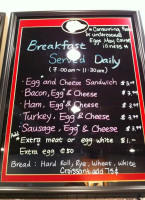 * Consuming Raw
or undercooked
Eggs May Cause
illness *
Breakfast
Served Daily
(7:00am - 11:30am)
Egg and Cheese Sandwich $
Bacon, Egg & Cheese $
Ham, Egg & Cheese $
Turkey, Egg & Cheese $
Sausage, Egg & Cheese $
Extra meat or egg white $1.
Extra egg ¢50
Bread: Hard Roll, Rye, Wheat, White
Croissant add 75¢